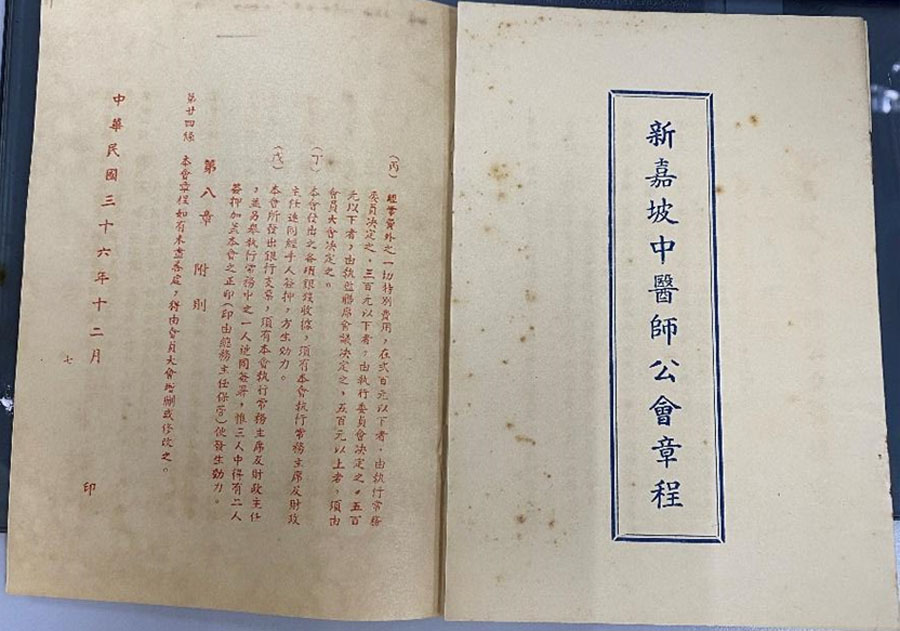 新嘉坡中醫師公會章程
(丙) 經常費外之一切特別費用,在弍百元以下者,由執行常務
委員決定之,三百元以下者,由執行委員會決定之。五百
元以下者,由執監聯席會議決定之,五百元以上者,須由
會員大會決定之。
(丁) 本會發出之各項銀錢收條,須有本會執行常務主席及財政
主任連同經手人簽押,方生効力。
(戊) 本會所發出銀行支票,須有本會執行常務主席及財政主任
,並另舉執行常務中之一人連同簽署,惟三人中得有二人
簽押加蓋本會之正印(印由總務主任保管)便發生効力。
第八章 附則
第廿四條 本會章程如有未盡善處,得由會員大會增刪或修改之。
中華民國三十六年十二月 印
七